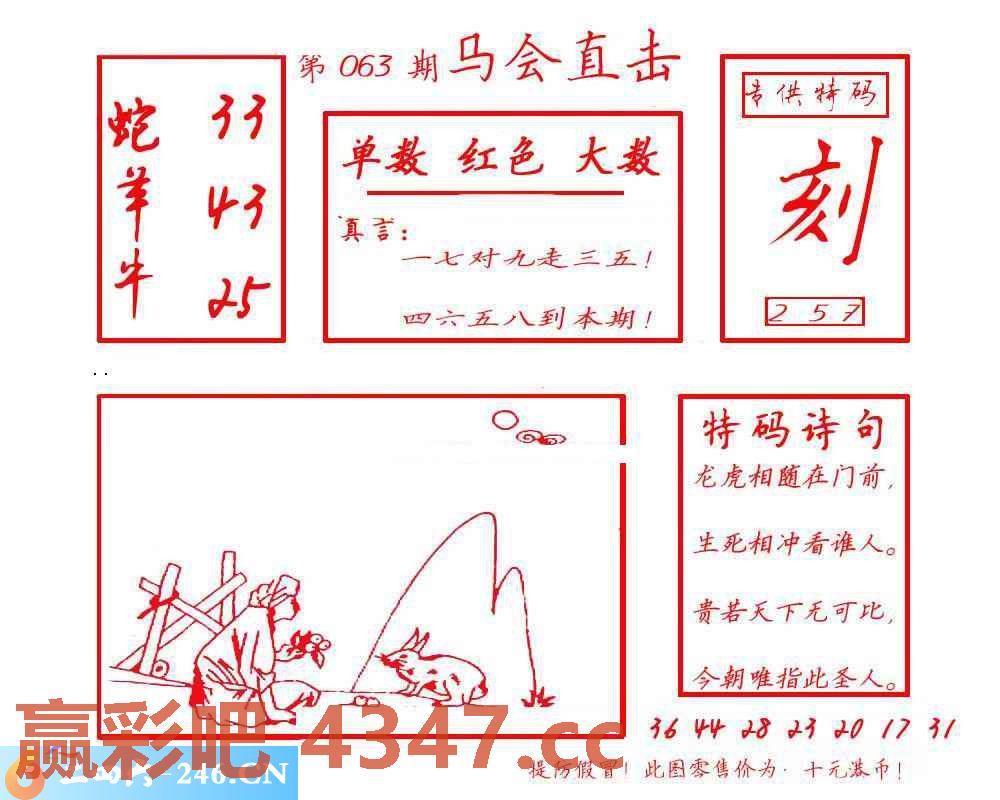 第 063 期 马会直击
蛇 33
羊 43
牛 25
单数 红色 大数
真言:
一七对九走三五!
四六五八到本期!
专供特码
刻
2 5 7
特码诗句
龙虎相随在门前,
生死相冲看谁人。
贵若天下无可比,
今朝唯指此圣人。
36 44 28 23 20 17 31
赢彩吧 4347.cc
-246.CN
提防假冒!此图零售价为·十元港币!